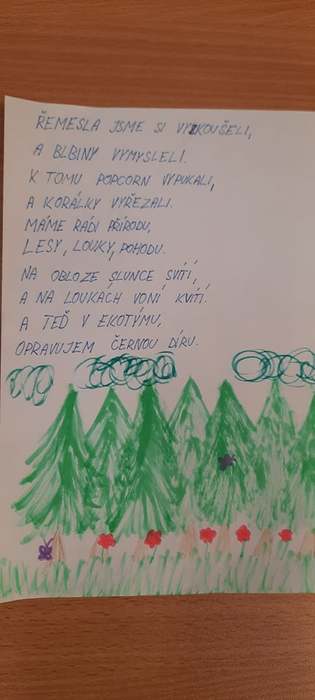 ŘEMESLA JSME SI VYZKOUŠELI,
A BLBINY VYMYSLELI.
K TOMU POPCORN VYPUKALI,
A KORÁLKY VYŘEZALI.
MÁME RÁDI PŘÍRODU,
LESY, LOUKY, POHODU.
NA OBLOZE SLUNCE SVÍTÍ,
A NA LOUKÁCH VONÍ KVÍTÍ.
A TEĎ V EKOTÝMU,
OPRAVUJEM ČERNOU DÍRU.